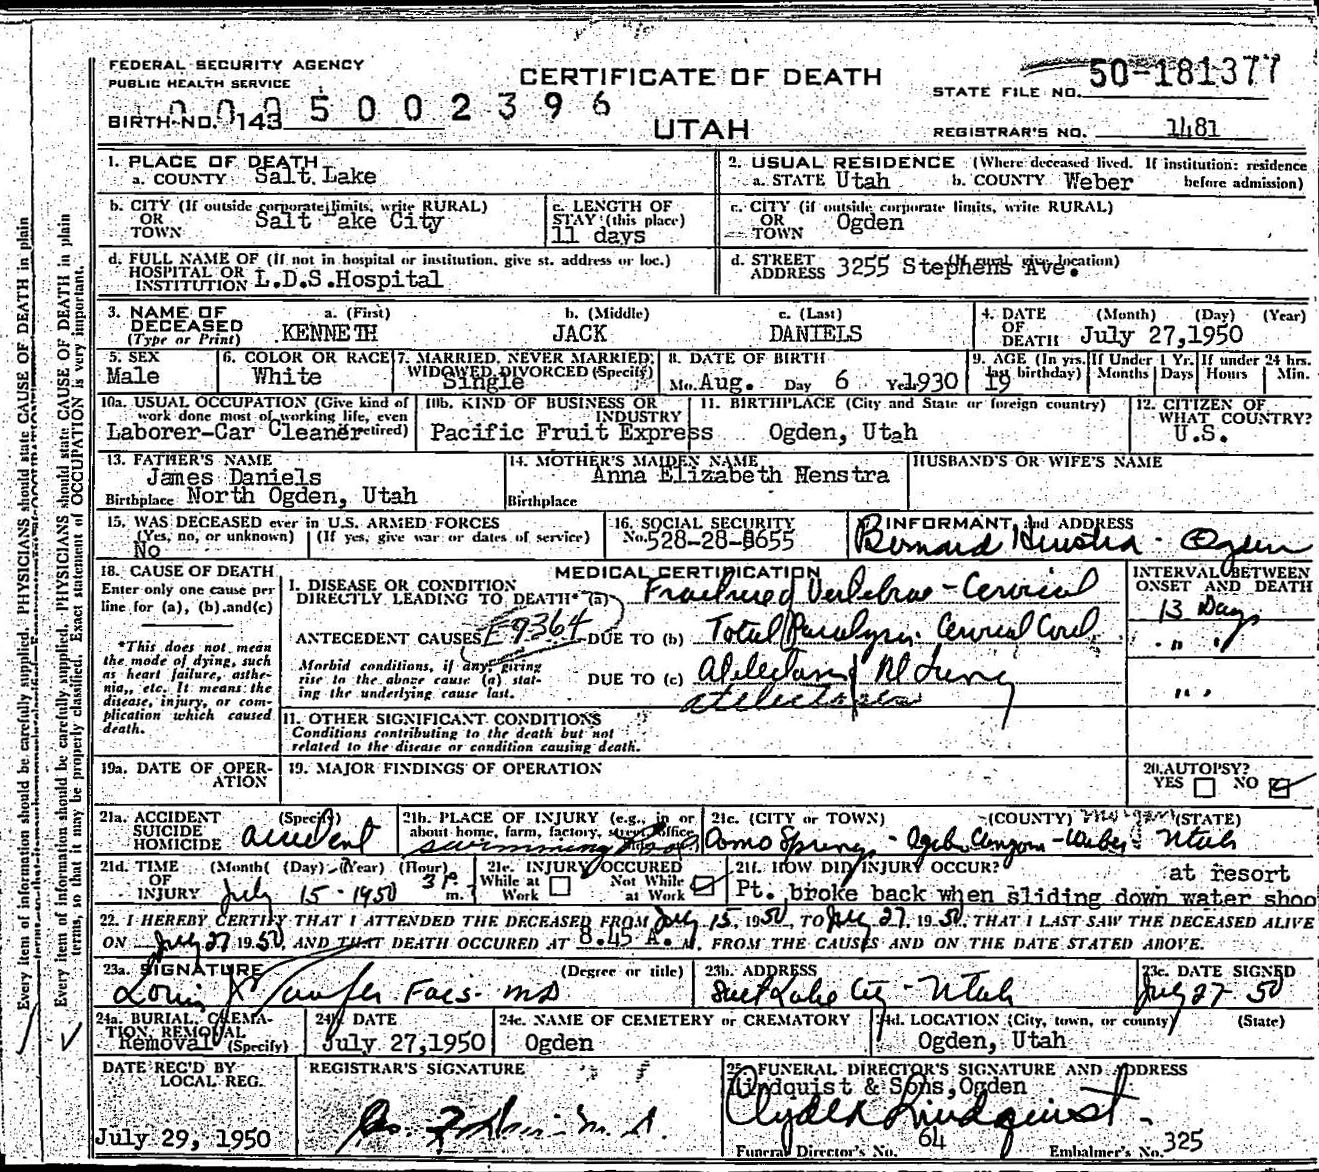 FEDERAL SECURITY AGENCY
PUBLIC HEALTH SERVICE
CERTIFICATE OF DEATH
UTAH
STATE FILE NO. 50-181377
BIRTH NO. 143
0005002396
REGISTRAR'S NO. 1481
1. PLACE OF DEATH
a. COUNTY Salt Lake
2. USUAL RESIDENCE (Where deceased lived. If institution: residence before admission)
a. STATE Utah b. COUNTY Weber
b. CITY (If outside corporate limits, write RURAL)
OR TOWN Salt ake City
c. LENGTH OF STAY (this place)
11 days
c. CITY (if outside corporate limits, write RURAL)
OR TOWN Ogden
d. FULL NAME OF (If not in hospital or institution, give st. address or loc.)
HOSPITAL OR INSTITUTION L.D.S.Hospital
d. STREET ADDRESS (If rural give location)
3255 Stephens Ave.
3. NAME OF DECEASED (Type or Print)
a. (First) KENNETH
b. (Middle) JACK
c. (Last) DANIELS
4. DATE OF DEATH (Month) (Day) (Year)
July 27,1950
5. SEX
Male
6. COLOR OR RACE
White
7. MARRIED, NEVER MARRIED, WIDOWED, DIVORCED (Specify)
Single
8. DATE OF BIRTH
Mo. Aug. Day 6 Yr. 1930
9. AGE (In yrs. last birthday)
19
If Under 1 Yr. Months Days
If under 24 hrs. Hours Min.
10a. USUAL OCCUPATION (Give kind of work done most of working life, even if retired)
Laborer-Car Cleaner
10b. KIND OF BUSINESS OR INDUSTRY
Pacific Fruit Express
11. BIRTHPLACE (City and State or foreign country)
Ogden, Utah
12. CITIZEN OF WHAT COUNTRY?
U.S.
13. FATHER'S NAME
James Daniels
Birthplace North Ogden, Utah
14. MOTHER'S MAIDEN NAME
Anna Elizabeth Henstra
Birthplace
HUSBAND'S OR WIFE'S NAME
15. WAS DECEASED ever in U.S. ARMED FORCES
(Yes, no, or unknown) (If yes, give war or dates of service)
No
16. SOCIAL SECURITY
No. 528-28-8655
INFORMANT and ADDRESS
Bernard Henstra - Ogden
18. CAUSE OF DEATH
Enter only one cause per line for (a), (b) and (c)
*This does not mean the mode of dying, such as heart failure, asthenia, etc. It means the disease, injury, or complication which caused death.
MEDICAL CERTIFICATION
INTERVAL BETWEEN ONSET AND DEATH
I. DISEASE OR CONDITION DIRECTLY LEADING TO DEATH* (a) Fractured Vertebrae - Cervical
13 Days
ANTECEDENT CAUSES E9364 DUE TO (b) Total Paralysis. Cervical Cord
" "
Morbid conditions, if any, giving rise to the above cause (a) stating the underlying cause last.
DUE TO (c) Atelectasis Rt Lung
atelectasis
" "
11. OTHER SIGNIFICANT CONDITIONS
Conditions contributing to the death but not related to the disease or condition causing death.
19a. DATE OF OPERATION
19. MAJOR FINDINGS OF OPERATION
20. AUTOPSY?
YES NO
21a. ACCIDENT SUICIDE HOMICIDE (Specify)
accident
21b. PLACE OF INJURY (e.g., in or about home, farm, factory, street, office
swimming pool
21c. (CITY or TOWN) (COUNTY) (STATE)
Morgan
Como Springs - Ogden Canyon - Weber Utah
21d. TIME OF INJURY (Month) (Day) (Year) (Hour)
July 15 - 1950 3 P. m.
21e. INJURY OCCURED
While at Work Not While at Work
21f. HOW DID INJURY OCCUR?
at resort
Pt. broke back when sliding down water shoo
22. I HEREBY CERTIFY THAT I ATTENDED THE DECEASED FROM July 15, 1950, TO July 27, 1950, THAT I LAST SAW THE DECEASED ALIVE
ON July 27 1950, AND THAT DEATH OCCURED AT 8.45 A. M., FROM THE CAUSES AND ON THE DATE STATED ABOVE.
23a. SIGNATURE (Degree or title)
Facs. MD
23b. ADDRESS
Salt Lake City - Utah
23c. DATE SIGNED
July 27 50
24a. BURIAL, CREMATION, REMOVAL (Specify)
Removal
24b. DATE
July 27,1950
24c. NAME OF CEMETERY or CREMATORY
Ogden
24d. LOCATION (City, town, or county) (State)
Ogden, Utah
DATE REC'D BY LOCAL REG.
July 29, 1950
REGISTRAR'S SIGNATURE
M.D.
25. FUNERAL DIRECTOR'S SIGNATURE AND ADDRESS
Lindquist & Sons, Ogden
Clyde Lindquist
Funeral Director's No. 64 Embalmer's No. 325
Every item of information should be carefully supplied. PHYSICIANS should state CAUSE OF DEATH in plain
Every item of information should be carefully supplied. PHYSICIANS should state CAUSE OF DEATH in plain
terms, so that it may be properly classified. Exact statement of OCCUPATION is very important.